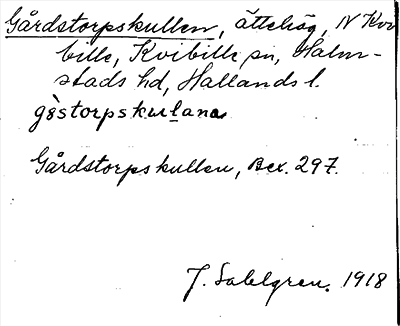 Gårdstorpskullen, ättehög, N Kvi
bille, Kvibille sn, Halm-
stads hd, Hallands l.
gòstorpskulana
Gårdstorpskullen, Bex. 297.
J. Sahlgren. 1918